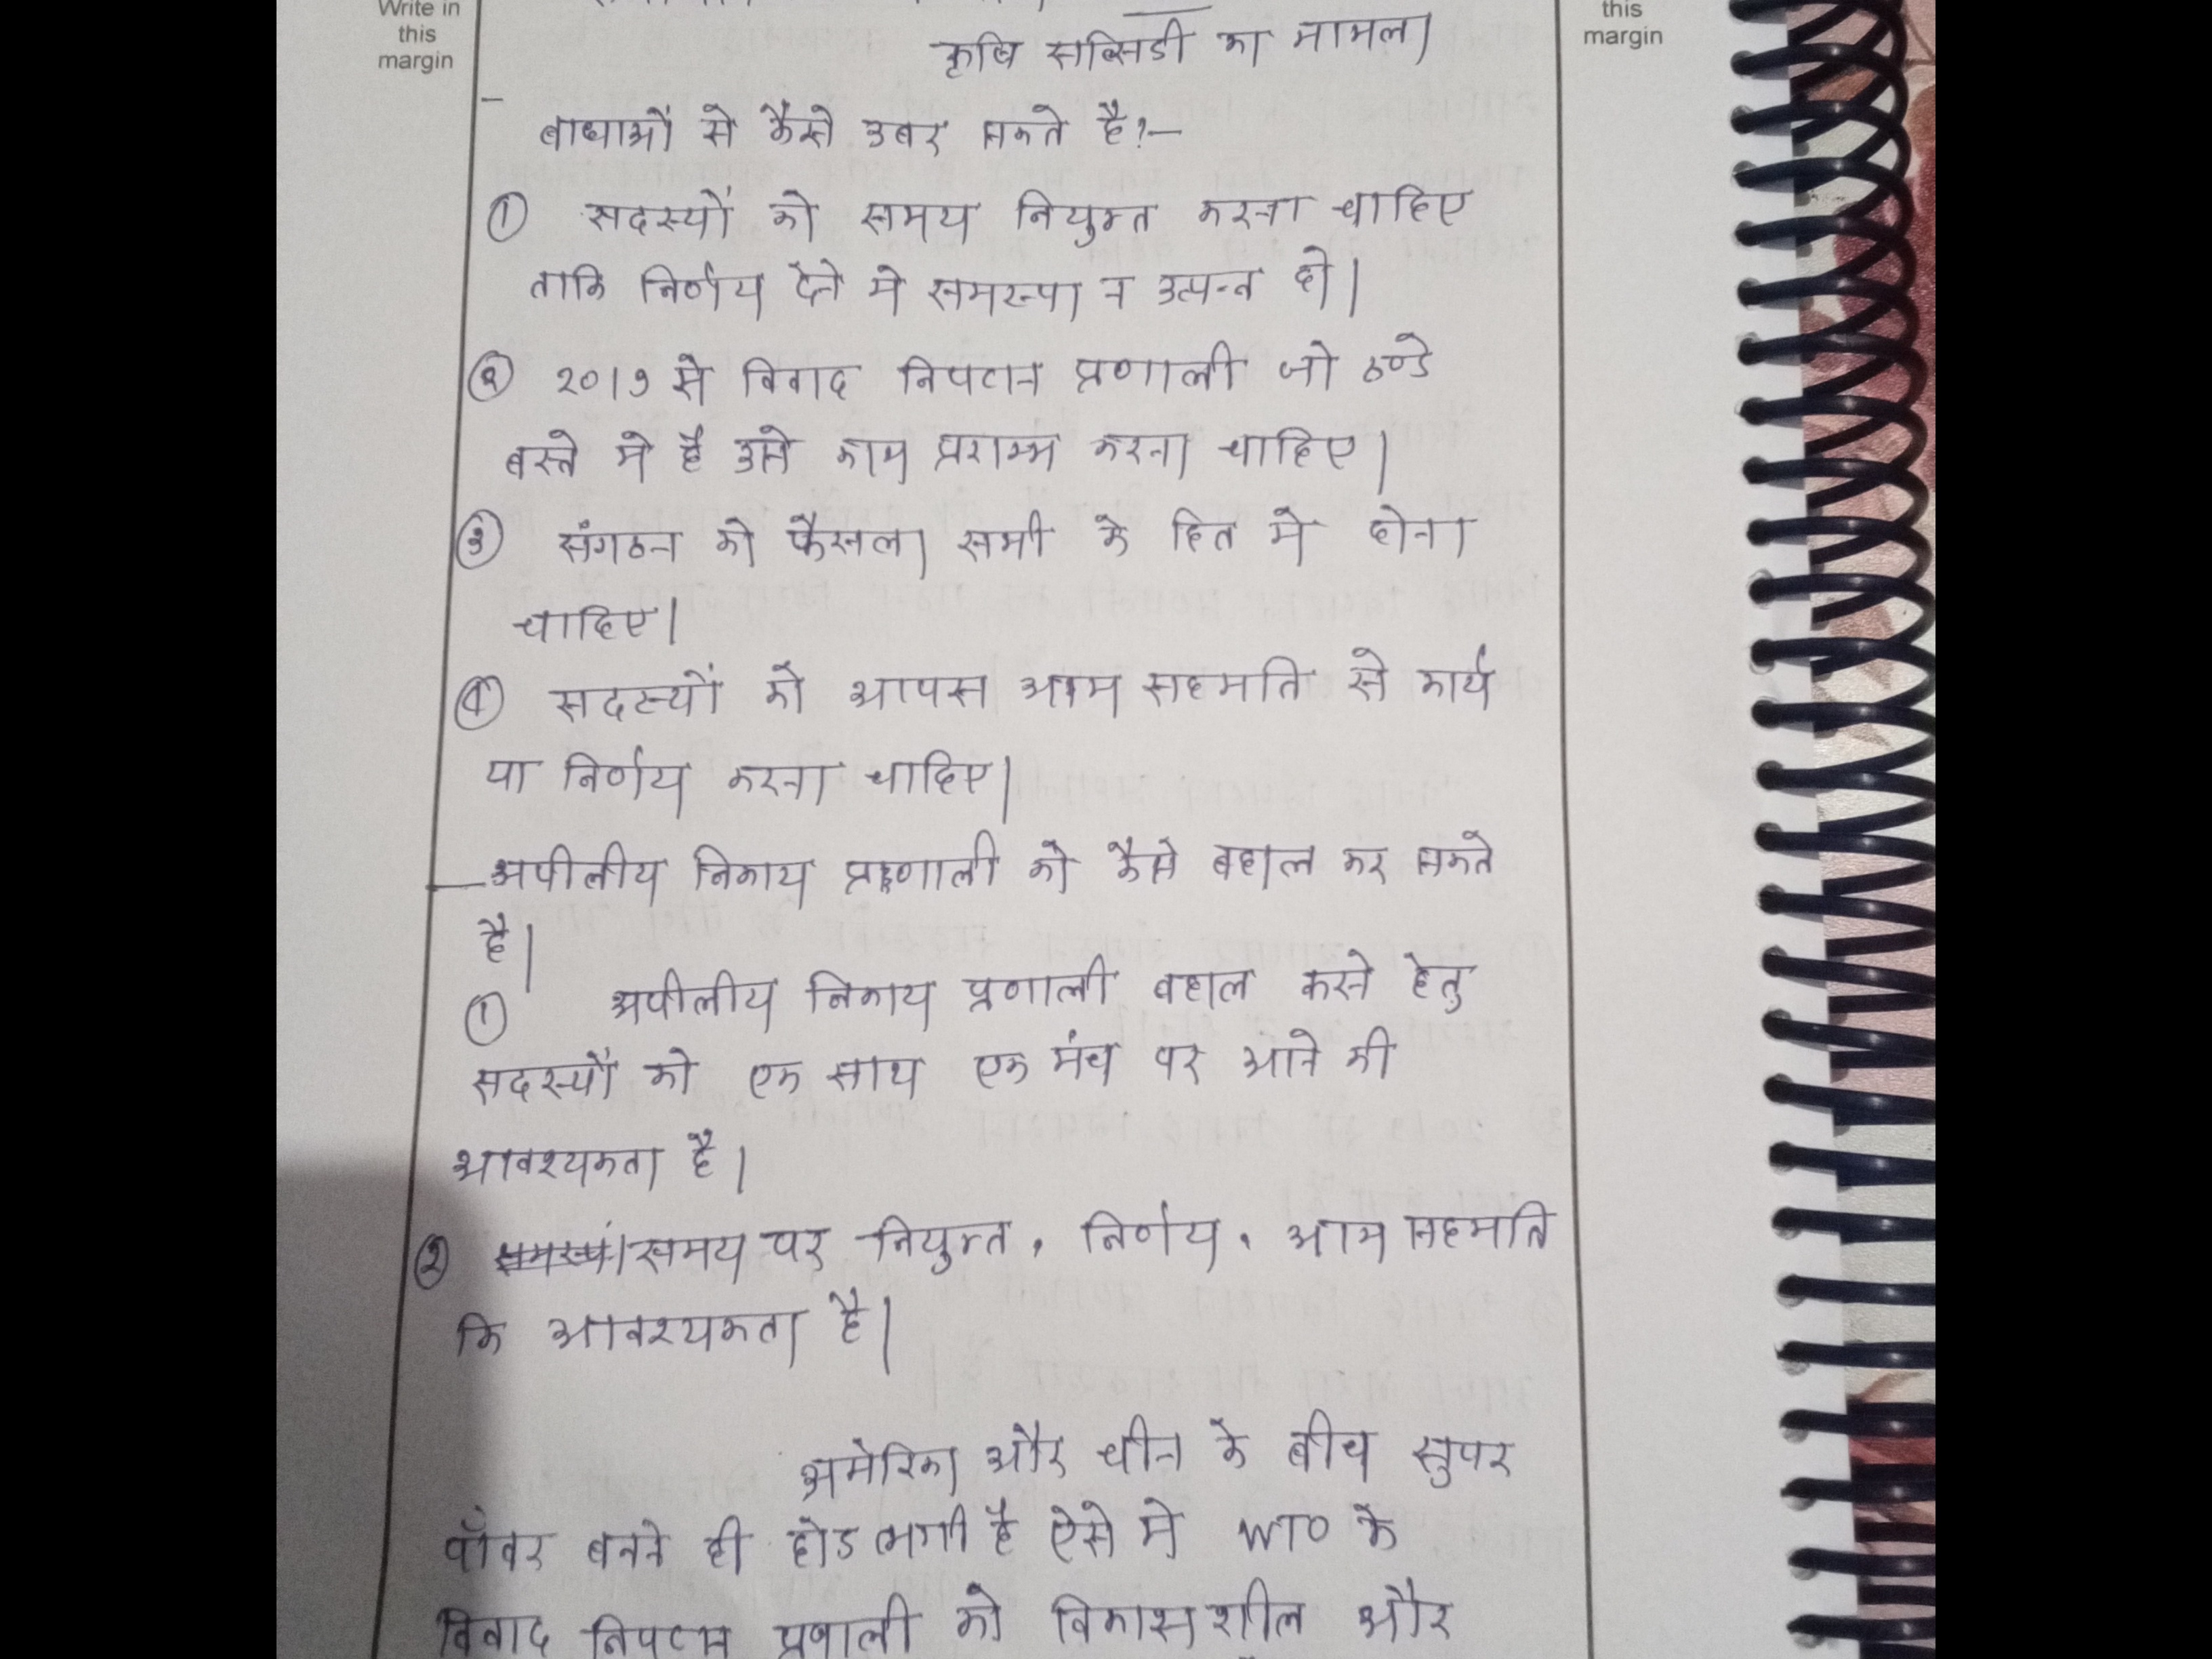 Write in
this
margin
this
margin
कृषि सब्सिडी का मामला
बाधाओं से कैसे उबर सकते है?—
① सदस्यों को समय नियुक्त करना चाहिए
ताकि निर्णय देने मे समस्या न उत्पन्न हो।
② 2019 से विवाद निपटान प्रणाली जो ठण्डे
बस्ते मे है उसे काम प्रारम्भ करना चाहिए।
③ संगठन को फैसला सभी के हित मे होना
चाहिए।
④ सदस्यों को आपस आम सहमति से कार्य
या निर्णय करना चाहिए।
— अपीलीय निकाय प्रणाली को कैसे बहाल कर सकते
है।
① अपीलीय निकाय प्रणाली बहाल करने हेतु
सदस्यों को एक साथ एक मंच पर आने की
आवश्यकता है।
② समय पर नियुक्त, निर्णय, आम सहमति
कि आवश्यकता है।
अमेरिका और चीन के बीच सुपर
पॉवर बनने ही होड लगी है ऐसे मे WTO के
विवाद निपटान प्रणाली को विकासशील और